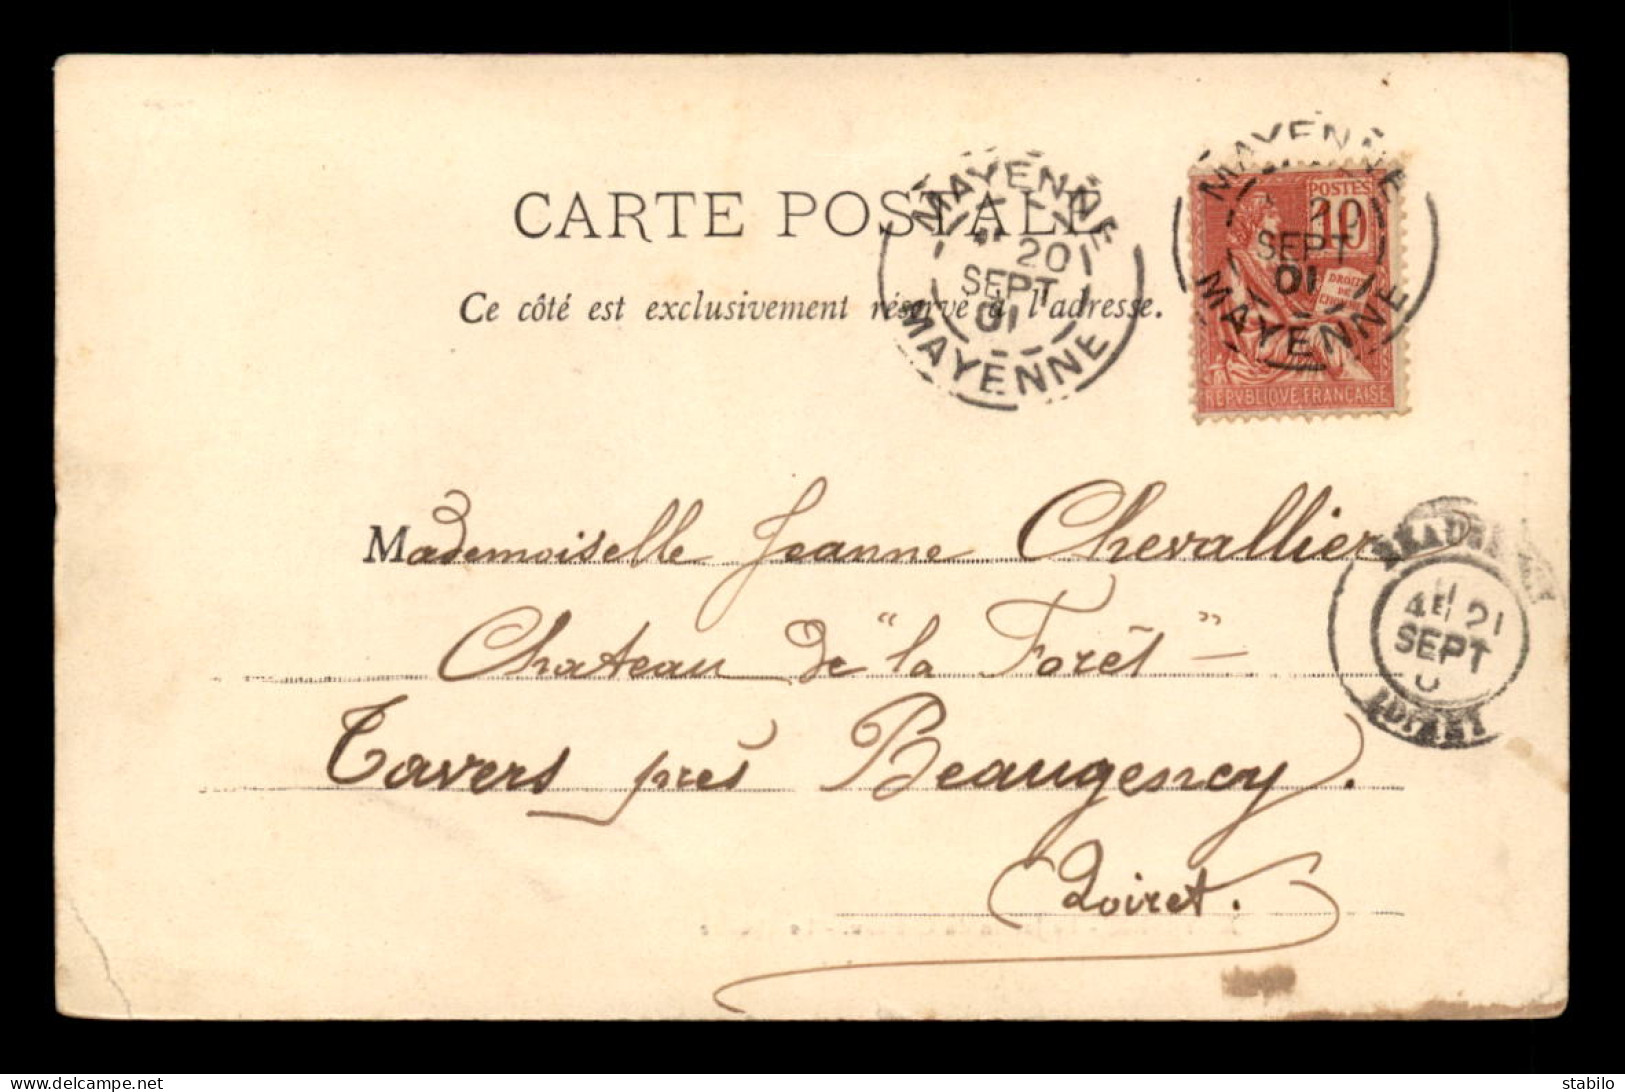 CARTE POSTALE
Ce côté est exclusivement réservé à l'adresse.
MAYENNE
20
SEPT
01
MAYENNE
MAYENNE
20
SEPT
01
MAYENNE
POSTES
10
DROITS
DE
REPVBLIQVE FRANÇAISE
Mademoiselle Jeanne Chevallier
Chateau de "la Forêt"
Tavers près Beaugency.
Loiret.
21
SEPT
LOIRET
delcampe.net
stabilo